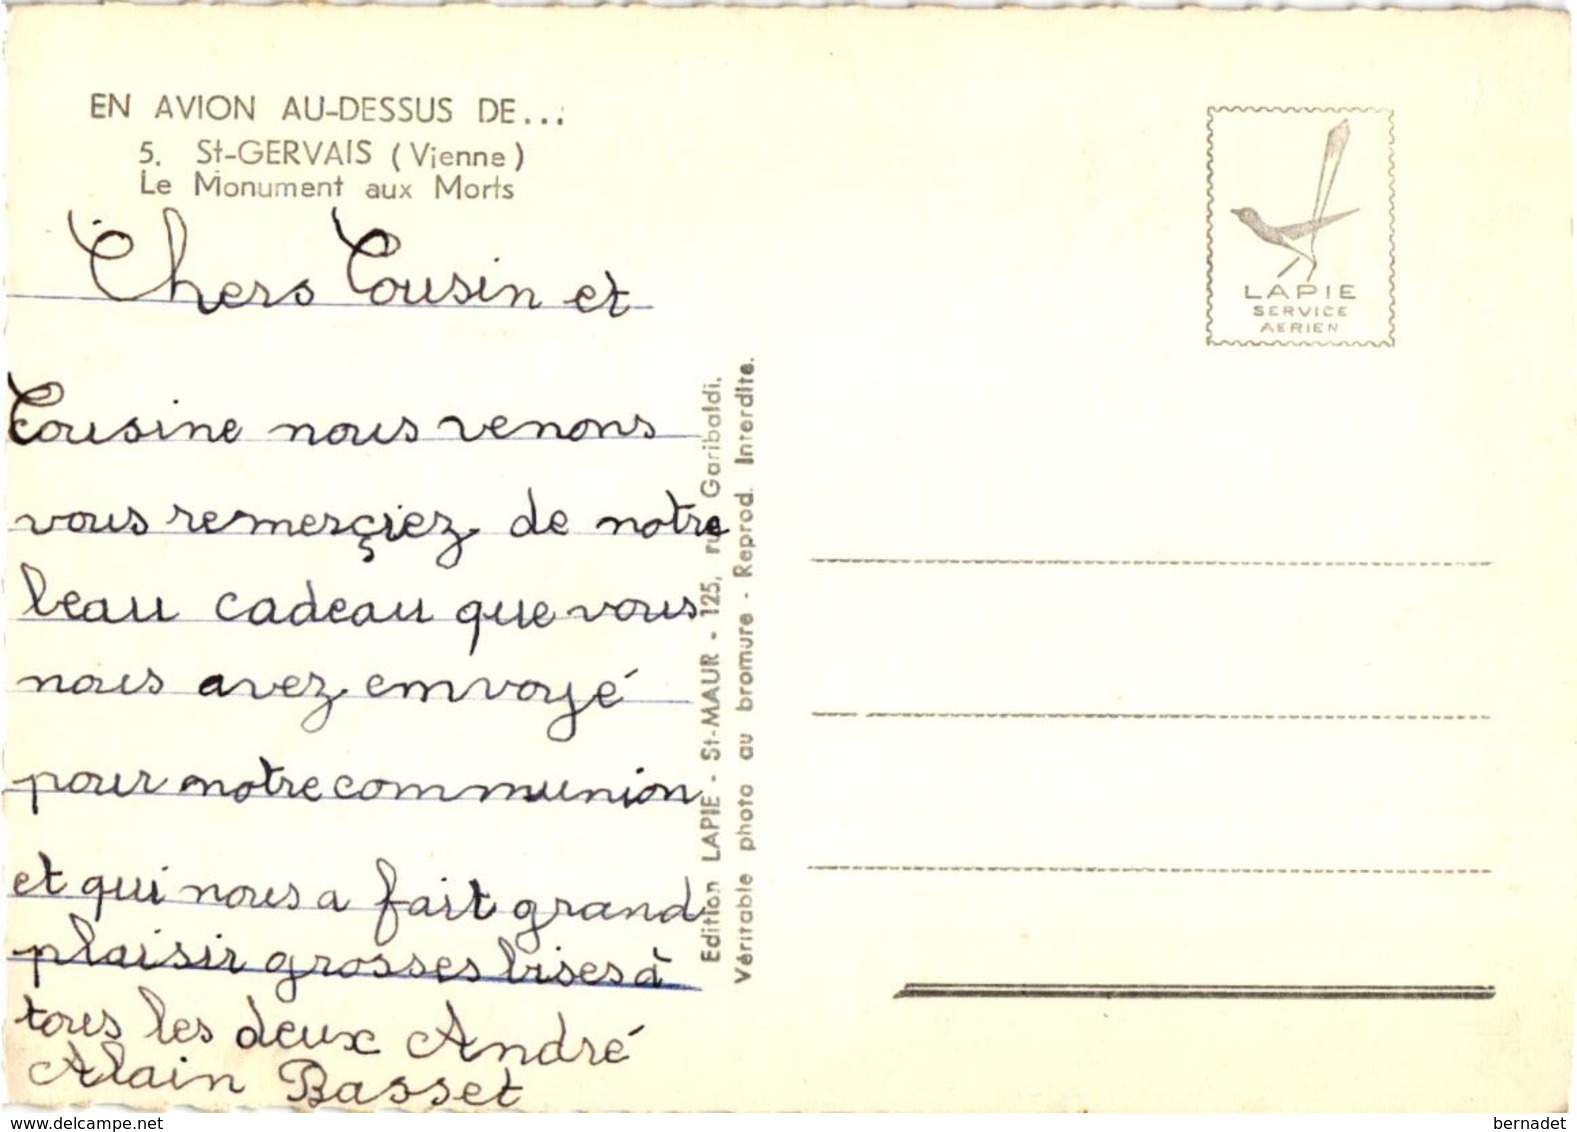 EN AVION AU-DESSUS DE...
5. St-GERVAIS (Vienne)
Le Monument aux Morts
Chers Cousin et
Cousine nous venons
vous remerçiez de notre
beau cadeau que vous
nous avez envoyé
pour notre communion
et qui nous a fait grand
plaisir grosses bises à
tous les deux André
Alain Basset
Edition LAPIE - St-MAUR - 125, rue Garibaldi.
Véritable photo au bromure - Reprod. Interdite.
LAPIE
SERVICE
AERIEN
delcampe.net
bernadet